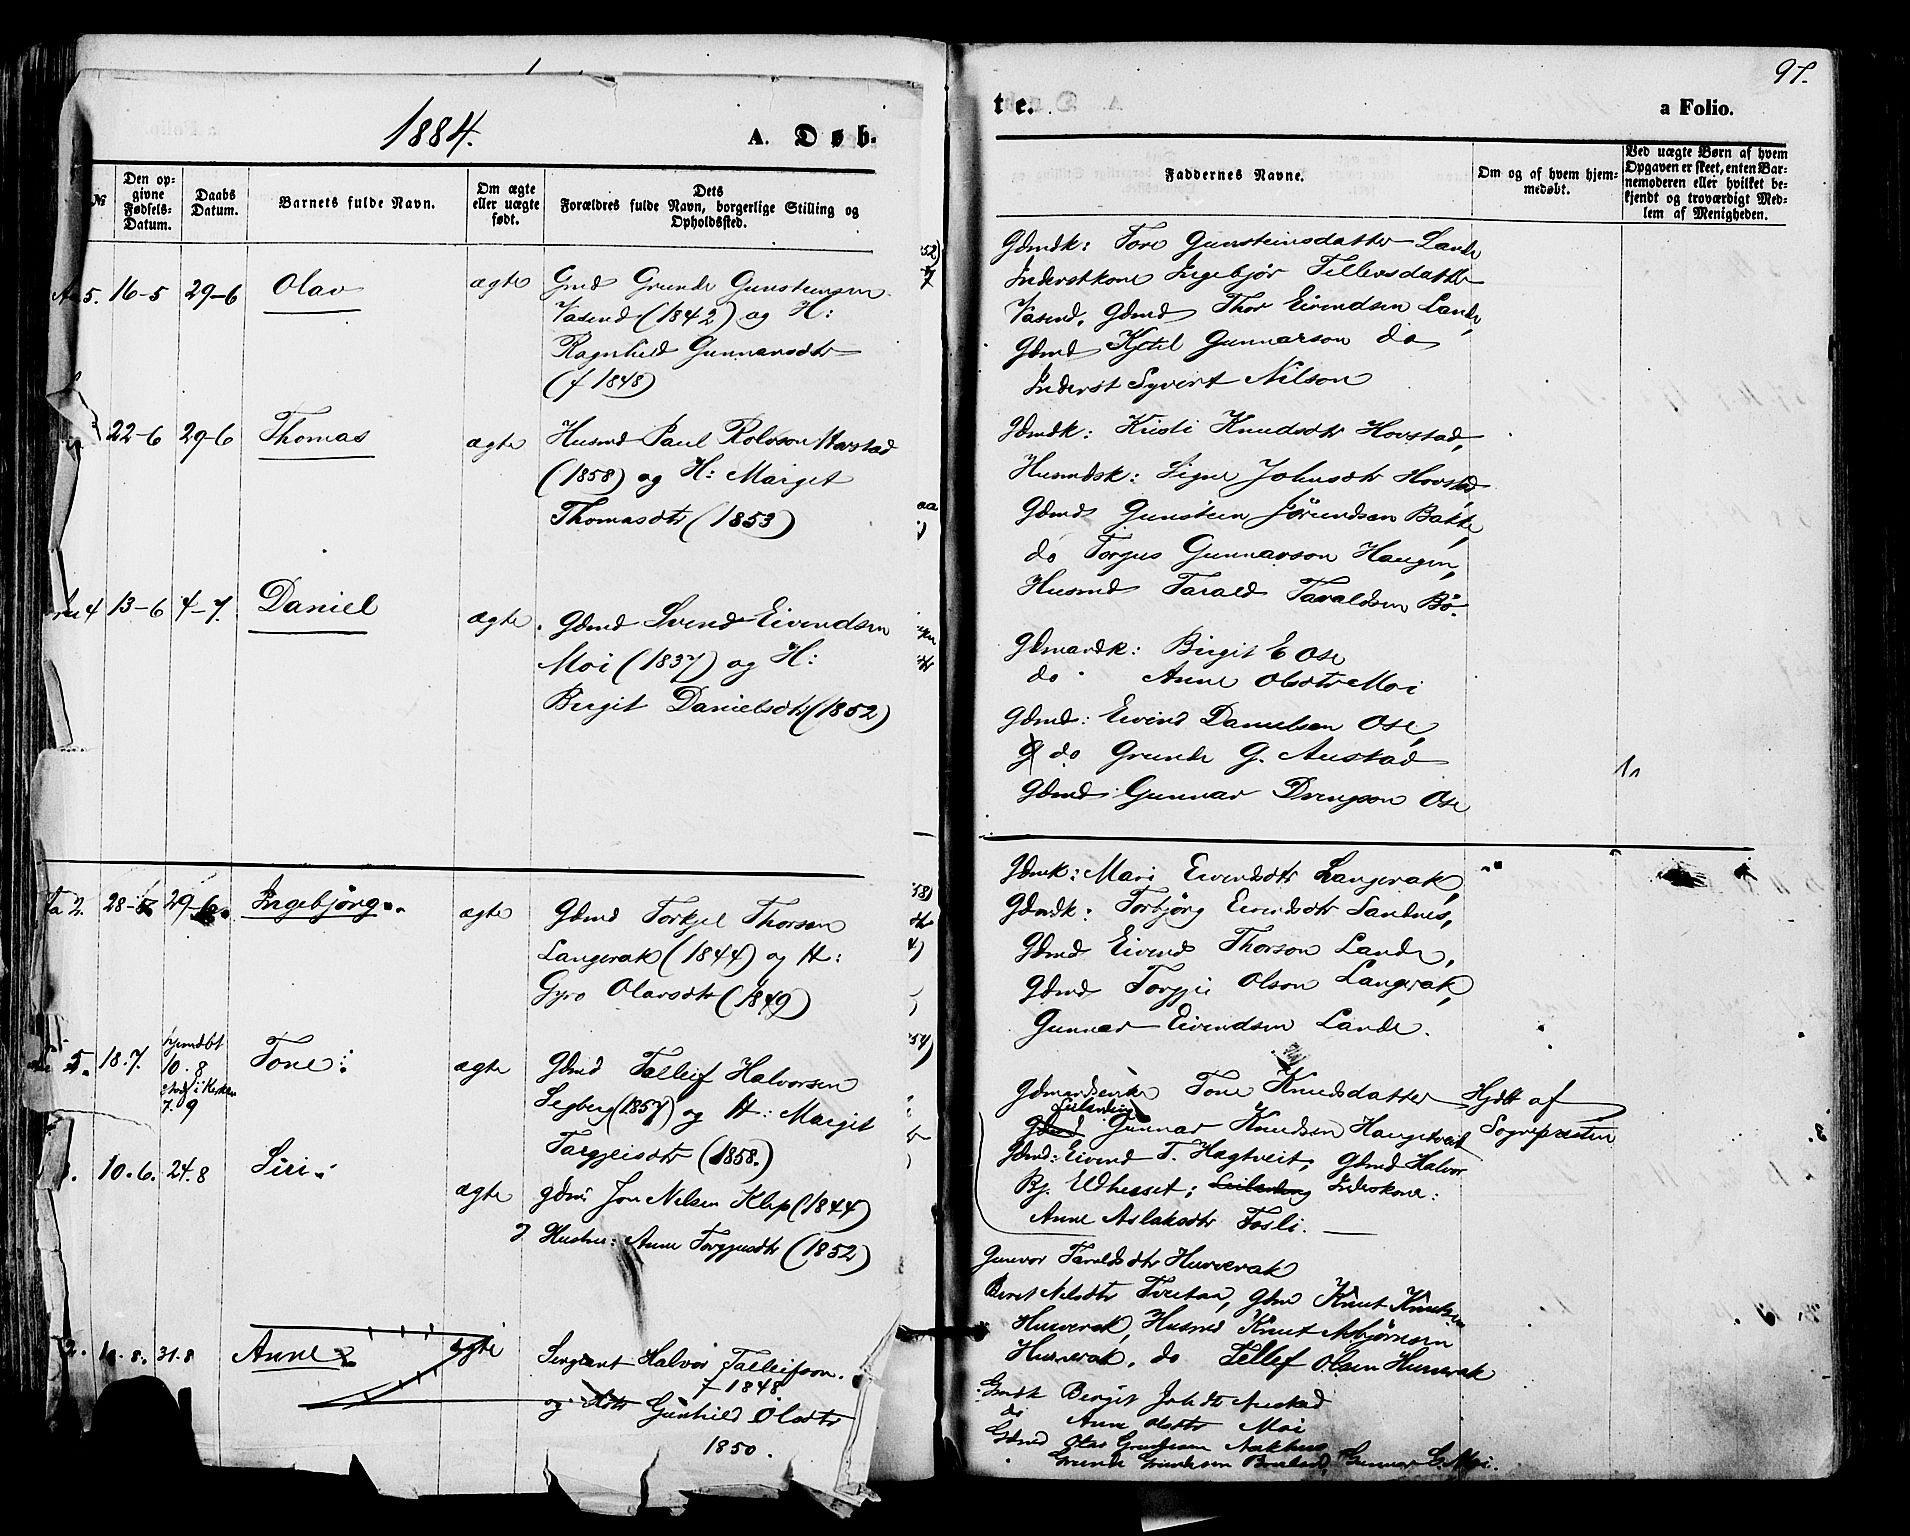 1884.
A. Døb-
№
Den op-
givne
Fødsels-
Datum.
Daabs
Datum.
Barnets fulde Navn.
Om ægte
eller uægte
født.
Dets
Forældres fulde Navn, borgerlige Stilling og
Opholdssted.
5. 16-5 29-6 Olav ægte Gmd Grunde Gunsteinsen
Vasend (1842) og H:
Ragnhild Gunnarsdtr
(f 1848)
22-6 29-6 Thomas ægte Husmd Paul Rolvson Harstad
(1858) og H: Margit
Thomasdtr (1853)
4 13-6 4-7. Daniel ægte Gdmd Svend Eivendsen
Moi (1837) og H:
Bergit Danielsdtr (1852)
2. 28- 29-6 Ingebjörg ægte Gdmd Torkjel Thorsen
Langerak (1844) og H:
Gyro Olavsdtr (1849)
5. 18.7. hjemdbt
10.8
i Kirken
7.9 Tone ægte Gdmd Talleif Halvorsen
(1857) og H: Margit
Targjeisdtr (1858.)
10.6. 24.8 Siri ægte gdmd Jon Nilsen Klep (1844)
Hustru: Anne Torgjusdtr (1852)
2. 31.8 Anne ægte Sergeant Halvor Talleifson.
f 1848
og Gunhild Olsdtr
1850.
te.
97.
a Folio.
Faddernes Navne.
Om og af hvem hjem-
medøbt.
Ved uægte Børn af hvem
Opgaven er skeet, enten Bar-
nemoderen eller hvilket be-
kjendt og troværdigt Med-
lem af Menigheden.
Gdmdk: Tore Gunsteinsdatter Lande
Inderstkone Ingebjør Tellevsdatter
Vasend, Gdmd Thor Eivendsen Lande,
Gdmd Kjetil Gunnarson do
Inderst Syvert Nilson
Gdmdk: Kristi Knudsdtr Hovstad,
Husmdsk: Signe Johnsdtr Hovstad
Gdmd Gunstein Jörundsen Bakke,
do Torgus Gunnarson Haugen,
Husmd Tarald Taraldsen Bö.
Gdmandk: Birgit E Ose
do Anne Olsdtr Moi
Gdmd: Eivind Danielsen Ose,
do Grunde G. Austad
Gdmd Gunnar Drengson Ose
Gdmk: Mari Eivendsdtr Langerak,
Gdmdk: Torbjörg Eivendsdtr Sandnes,
Gdmd Eivend Thorson Lande,
Gdmd Torgje Olson Langerak,
Gunnar Eivendsen Lande.
Gdmandsenke Tone Knudsdatter Hjdbt af
Leilending
Gdmd Gunnar Knudsen Haugetveit Sognepresten
Gdmd: Eivend T. Hagtveit, Gdmd Halvor
Bj. Uldhesset; Leilending Inderskone:
Anne Aslaksdtr Fosli.
Gunvor Taraldsdtr Husverak
Beret Nilsdtr Tveitaa, gdm Knut Knutsen
Husverak, Husmd Knut Asbjörnsen
Husverak. do Tellef Olsen Husverak
Gmdk Bergit Johdtr Austad
do Anne Olsdtr Moi
Gdmd Olav Grundesen Aakhus
Grunde Grundesen Gunnar Moi.